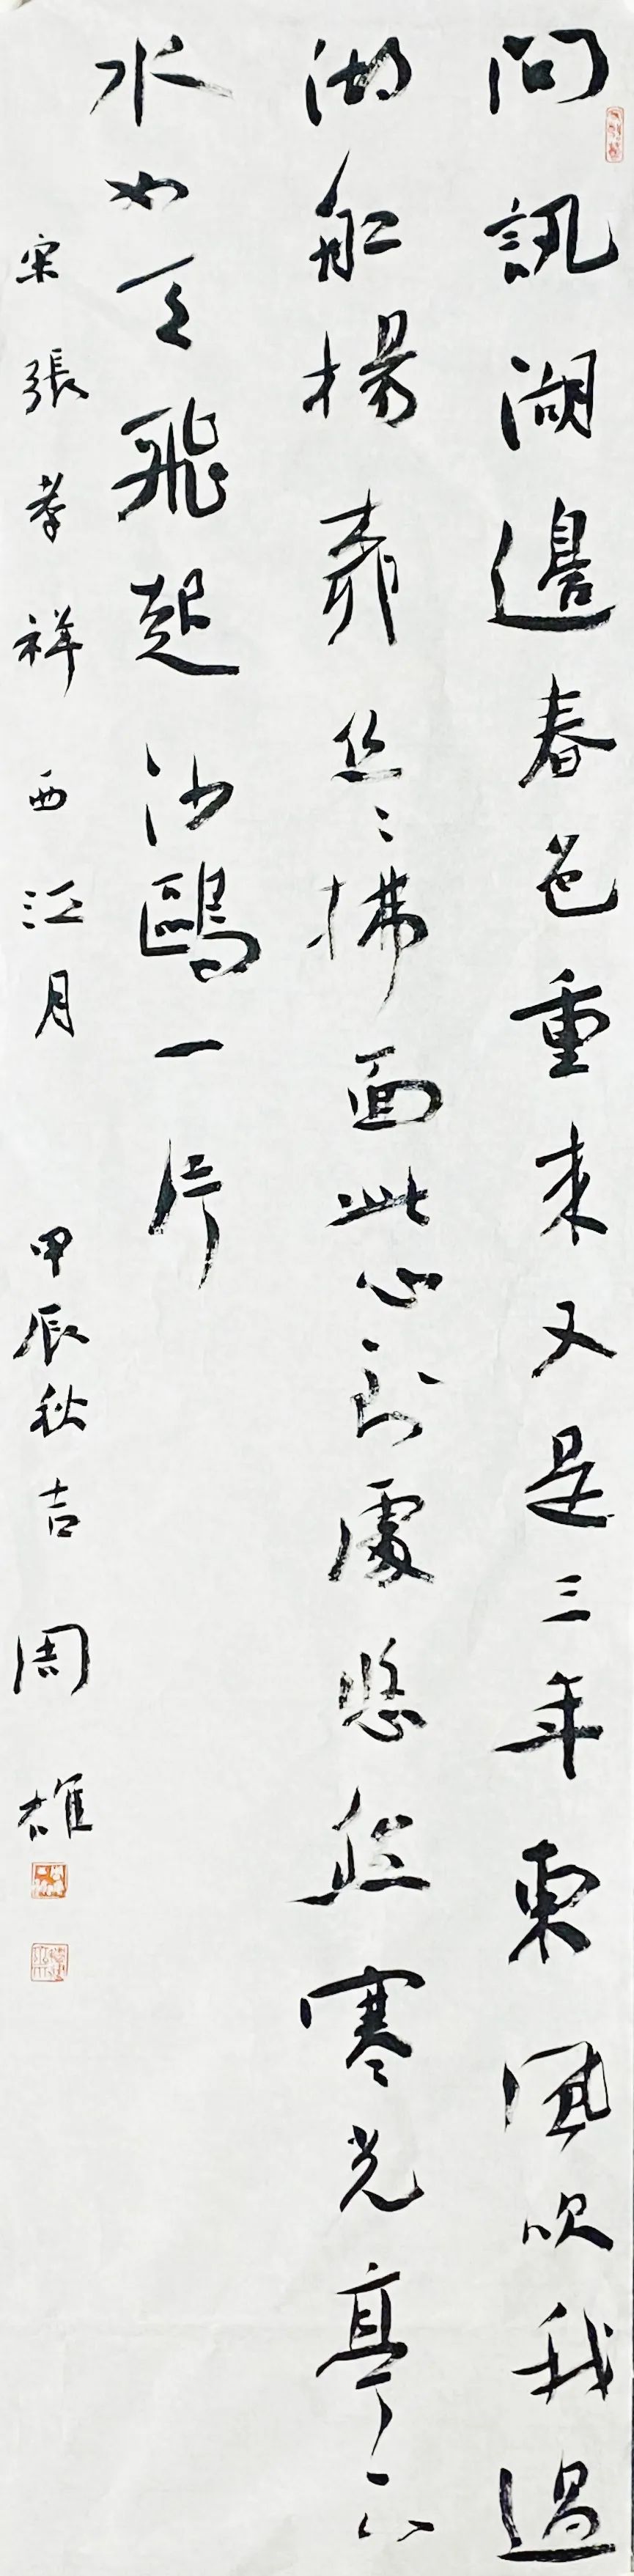 問訊湖邊春色重来又是三年東風吹我過
湖船楊柳丝〻拂面此心到處悠然寒光亭下
水如天飛起沙鷗一片
宋張孝祥西江月 甲辰秋吉 周雄